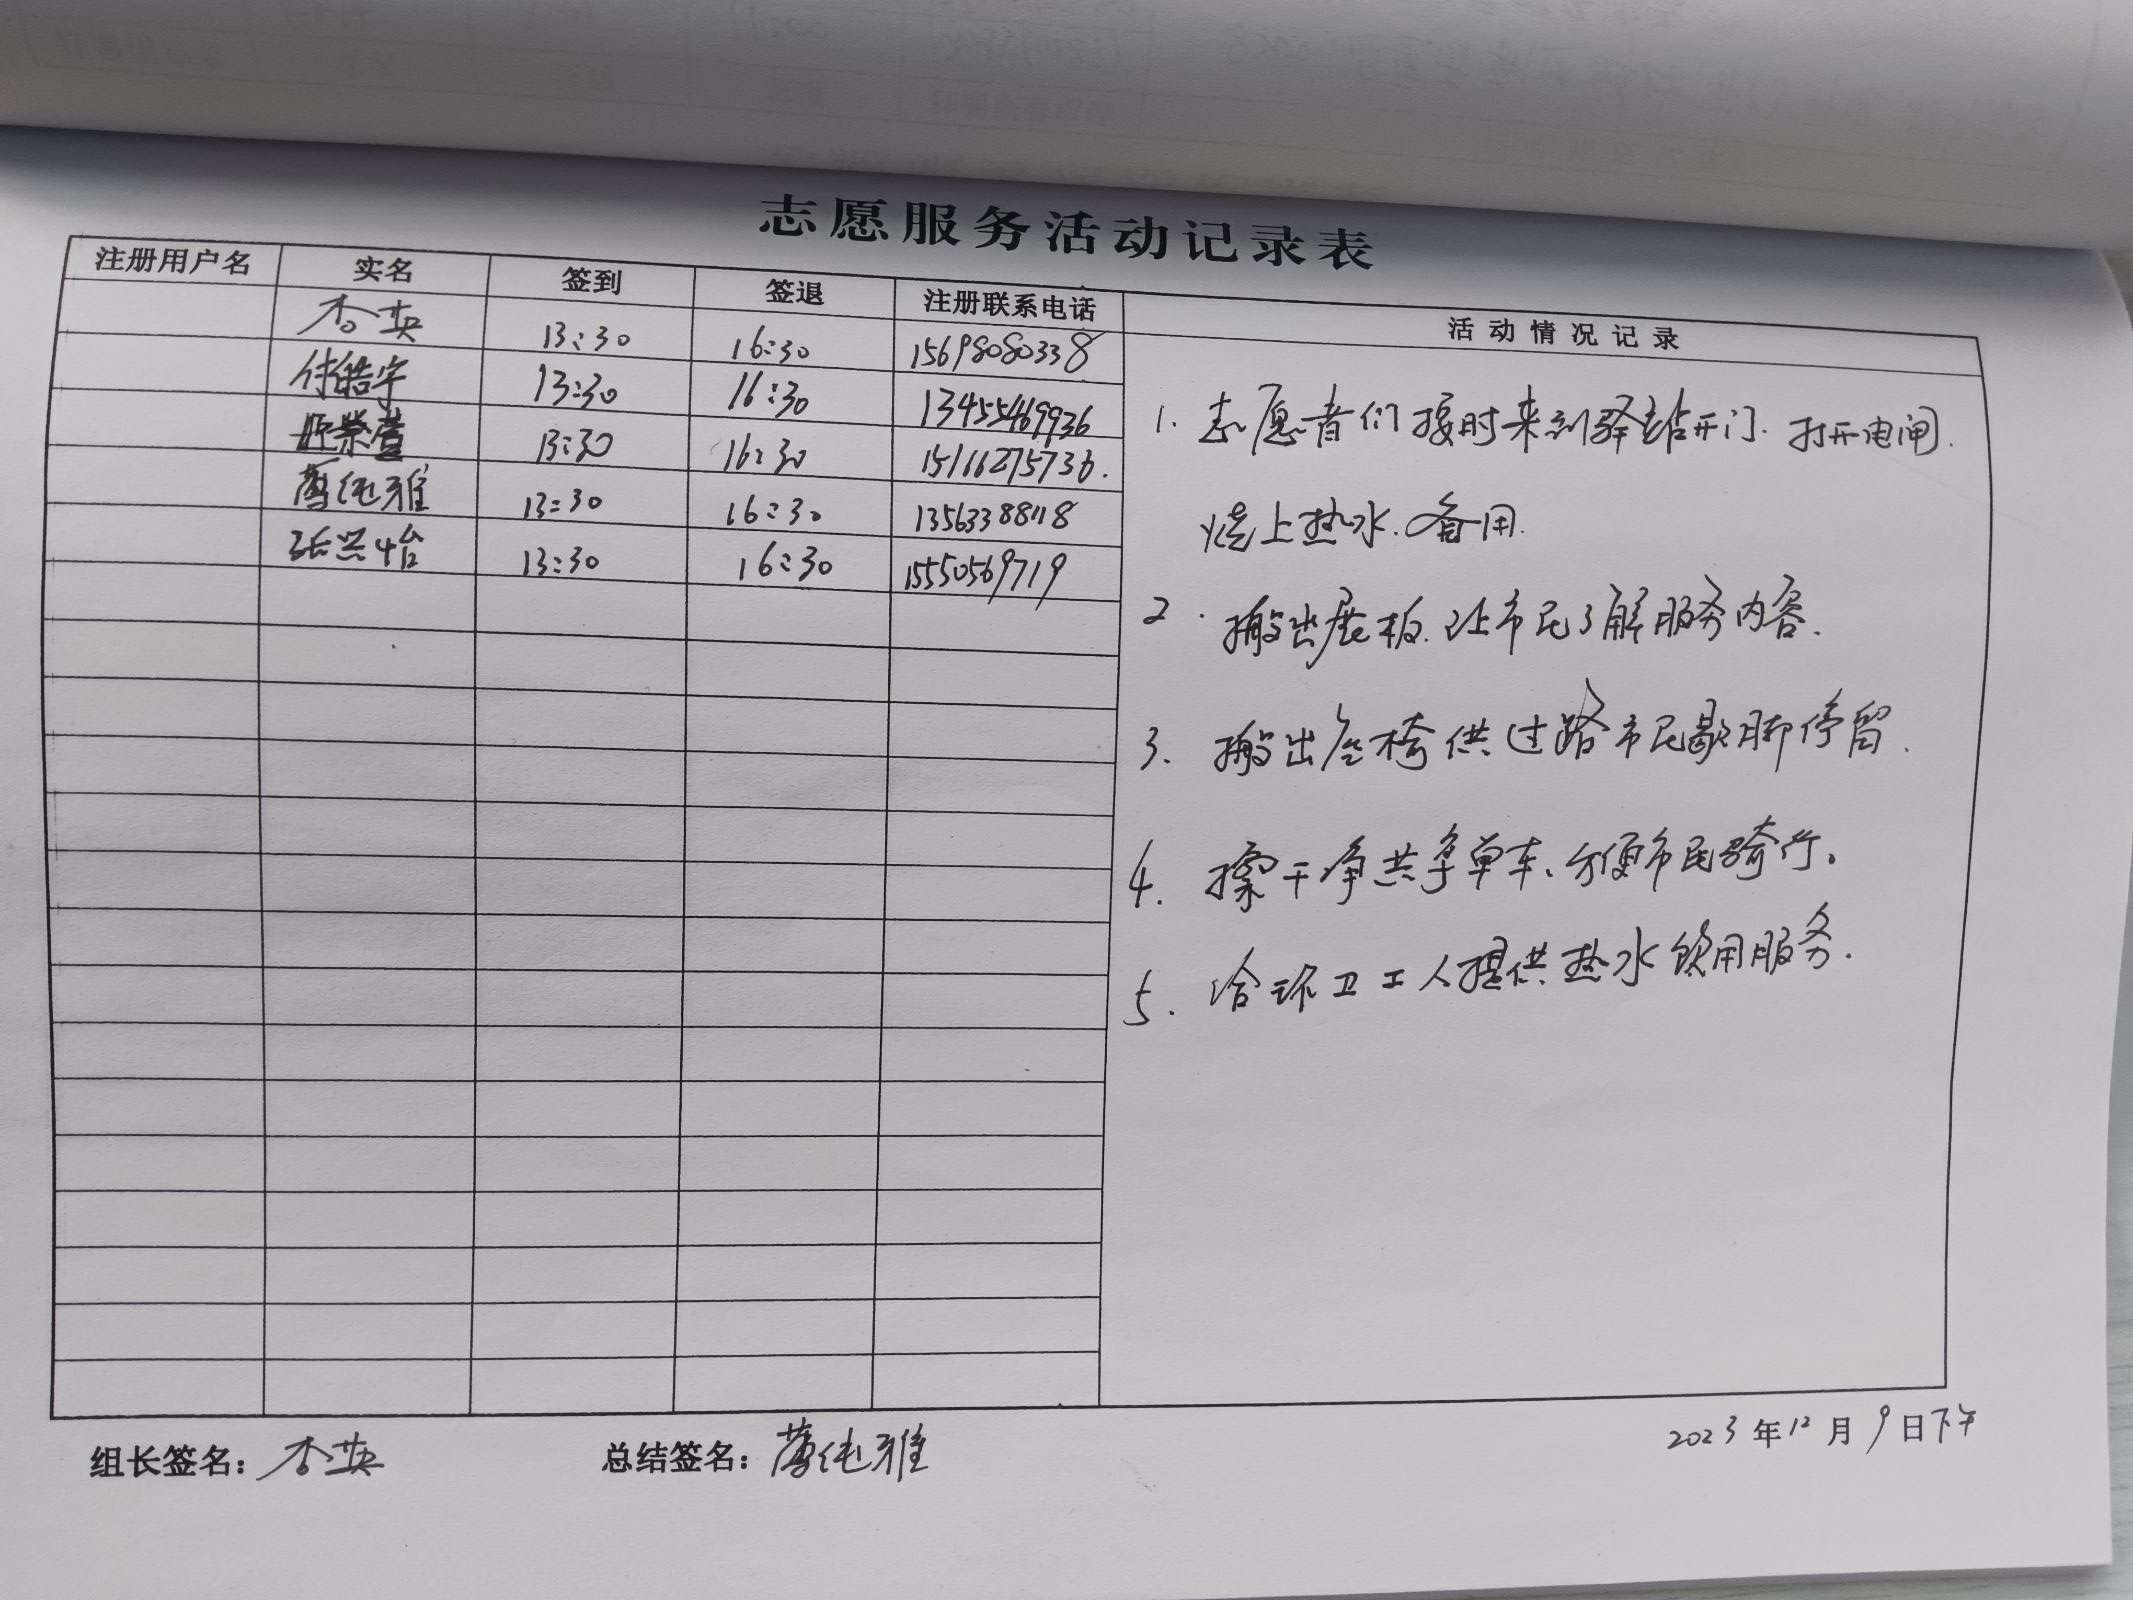 志愿服务活动记录表
注册用户名 实名 签到 签退 注册联系电话 活动情况记录
杏英 13:30 16:30 15698080338
付皓宇 13:30 16:30 13455469936
13:30 16:30 15116275736.
薄纯雅 13:30 16:30 13563388118
张兴怡 13:30 16:30 15550569719
1. 志愿者们按时来到驿站开门. 打开电闸.
烧上热水.备用.
2. 搬出展板.让市民了解服务内容.
3. 搬出座椅供过路市民歇脚停留.
4. 擦干净共享单车、方便市民骑行。
5. 给环卫工人提供热水饮用服务.
组长签名：杏英 总结签名：薄纯雅 2023年12月9日下午